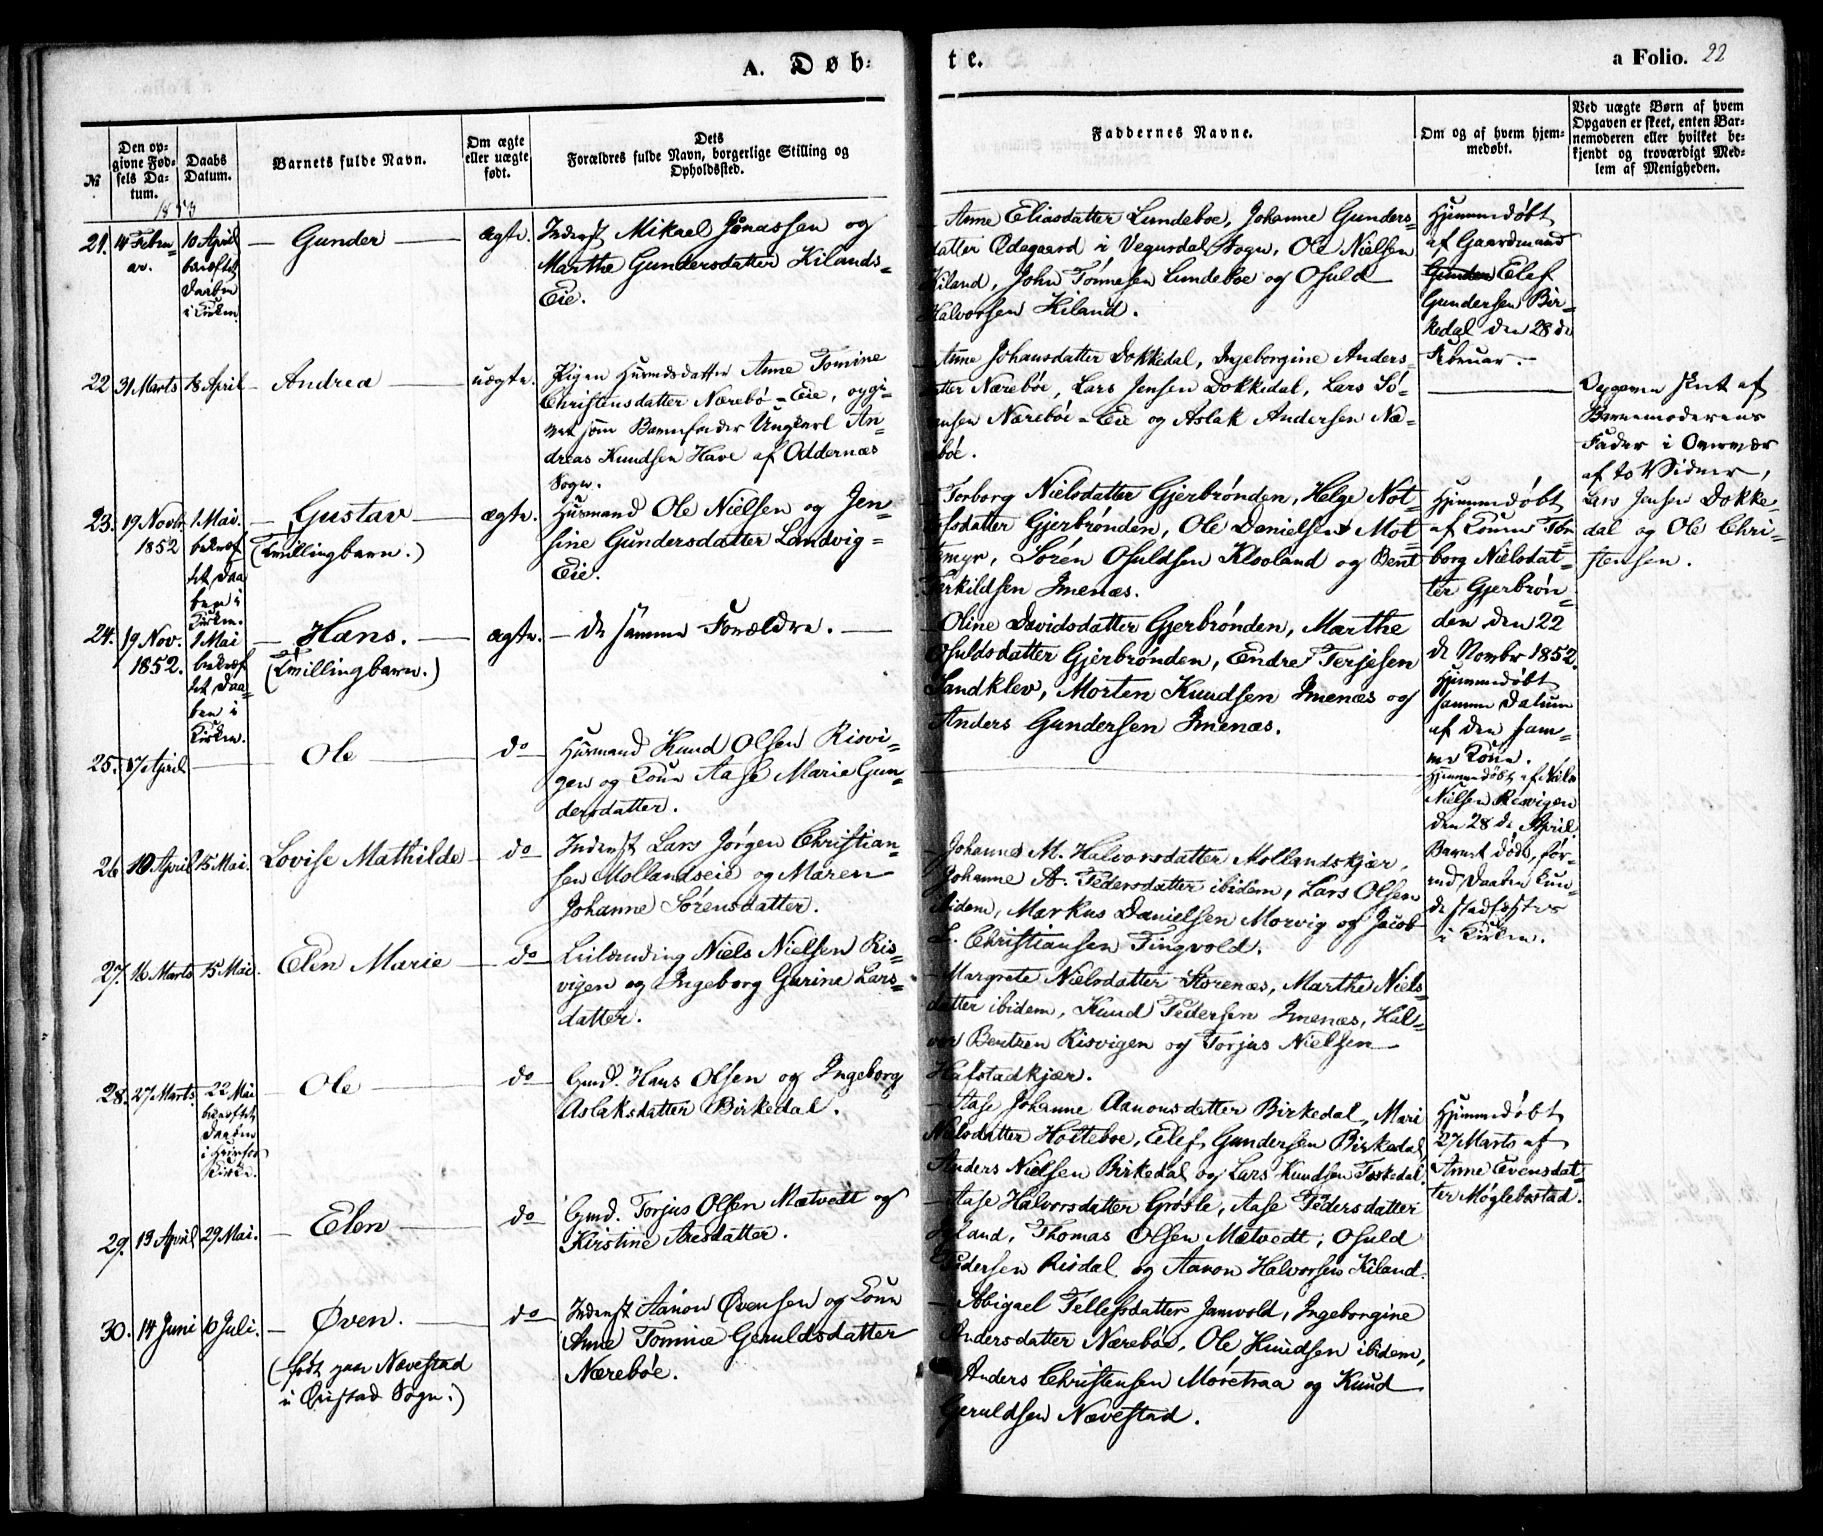 A. Døb-
te.
a Folio. 22
№
Den op-
givne Fød-
sels Da-
tum.
Daabs
Datum.
Barnets fulde Navn.
Om ægte
eller uægte
født.
Dets
Forældres fulde Navn, borgerlige Stilling og
Opholdssted.
Faddernes Navne.
Om og af hvem hjem-
medøbt.
Ved uægte Børn af hvem
Opgaven er skeet, enten Bar-
nemoderen eller hvilket be-
kjendt og troværdigt Med-
lem af Menigheden.
1853
21.
14 Febru-
ar.
10 April
bekræftet
Daaben
i Kirken
Gunder
ægte.
Inderst Mikael Jonassen og
Marthe Gundersdatter Kilands-
Eie.
Anne Eliasdatter Lundeboe, Johanne Gunders-
datter Ødegaard i Vegusdal Sogn, Ole Nielsen
Kiland, John Tønnesen Lundeboe og Osuld
Halvorsen Kiland.
Hjemmedøbt
af Gaardmand
Gunder Elef
Gundersen Bir-
kedal den 28de
Februar.
22
31 Marts
18 April
Andrea
uægte.
Pigen Huusmdsdatter Anne Tomine
Christensdatter Nærebö-Eie, opgi-
vet som Barnefader Ungkarl An-
dreas Knudsen Have af Oddernæs
Sogn.
Anne Johansdatter Dokkedal, Ingeborgine Anders-
datter Nærebôe, Lars Jensen Dokkedal, Lars Sö-
rensen Nærebôe-Eie og Aslak Andersen Næ-
rebôe.
Opgaven skeet af
Barnemoderens
Fader i Overvær
af to Vidner,
Lars Jensen Dokke-
dal og Ole Chri-
stensen.
23.
19 Novb.
1852
1 Mai.
bekræf
tet Daa
ben i
Kirken.
Gustav
(Tvillingbarn.)
ægte.
Huusmand Ole Nielsen og Jen-
sine Gundersdatter Landvig-
Eie.
Torborg Nielsdatter Gjerbrónden, Helge Not-
datter Gjerbrónden, Ole Danielsen Mot-
myr, Sören Osuldsen Klooland og Bent
Terkildsen Imenæs.
Hjemmedøbt
af Konen Tor-
borg Nielsdat-
ter Gjerbrón-
den den 22
de Novbr 1852.
24.
19 Nov.
1852.
1 Mai
bekræf
tet Daa-
ben i
Kirken.
Hans.
(Tvillingbarn.)
ægte.
de samme Forældre.
Oline Davidsdatter Gjerbrónden, Marthe
Osuldsdatter Gjerbrónden, Endre Terjesen
Sandklev, Morten Knudsen Imenæs og
Anders Gundersen Imenæs.
Hjemmedøbt
samme Datum
af den sam-
me Kone.
25.
17 April
Ole
do
Huusmand Knud Olsen Risvi-
gen og Kone Aase Marie Gun-
dersdatter.
Hjemmedøbt af Niels
Nielsen Risvigen
den 28de April.
Barnet døde, før-
end Daaben kun-
de stadfæstes
i Kirken.
26
10 April
15 Mai.
Lovise Mathilde
do
Inderst Lars Jørgen Christian-
sen Mollandseie og Maren
Johanne Sörensdatter.
Johanne M. Halvorsdatter Mollandskjær,
Johanne A. Pedersdatter ibidem, Lars Olsen
ibidem, Markus Danielsen Morvig og Jacob
L. Christiansen Tingvold.
27.
16 Marts
15 Mai.
Elen Marie
do
Leilænding Niels Nielsen Ris-
vigen og Ingeborg Gurine Lars-
datter.
Margrete Nielsdatter Storenæs, Marthe Niels-
datter ibidem, Knud Pedersen Imenæs, Hal-
vor Bentzen Risvigen og Torjus Nielsen
Hafstadkjær.
28.
27 Marts.
22 Mai
bekræftet
Daaben
i
Kirke.
Ole
do
Gmd. Hans Olsen og Ingeborg
Aslaksdatter Birkedal.
Aase Johanne Aanonsdatter Birkedal, Mari
Nielsdatter Holteboe, Elef Gundersen Birkedal,
Anders Nielsen Birkedal og Lars Knudsen Toskedal.
Hjemmedøbt
27 Marts af
Anne Evensdat-
ter Møglebostad.
29.
13 April
29 Mai.
Elen
do
Gmd. Torjus Olsen Mætvedt og
Kirstine Aresdatter.
Aase Halvorsdatter Grösle, Aase Pedersdatter
Thomas Olsen Mætvedt, Osuld
Pedersen Risdal og Aanon Halvorsen Kiland.
30.
14 Juni
10 Juli.
Øven.
(født paa Nævestad
i Øiestad Sogn.)
do
Inderst Aanon Øvensen og Kone
Anne Tomine Geruldsdatter
Nærebôe.
Abigael Tellefsdatter Jamvold, Ingeborgine
Andersdatter Nærebôe, Ole Knudsen ibidem,
Anders Christensen Möretraa og Knud
Geruldsen Nævestad.